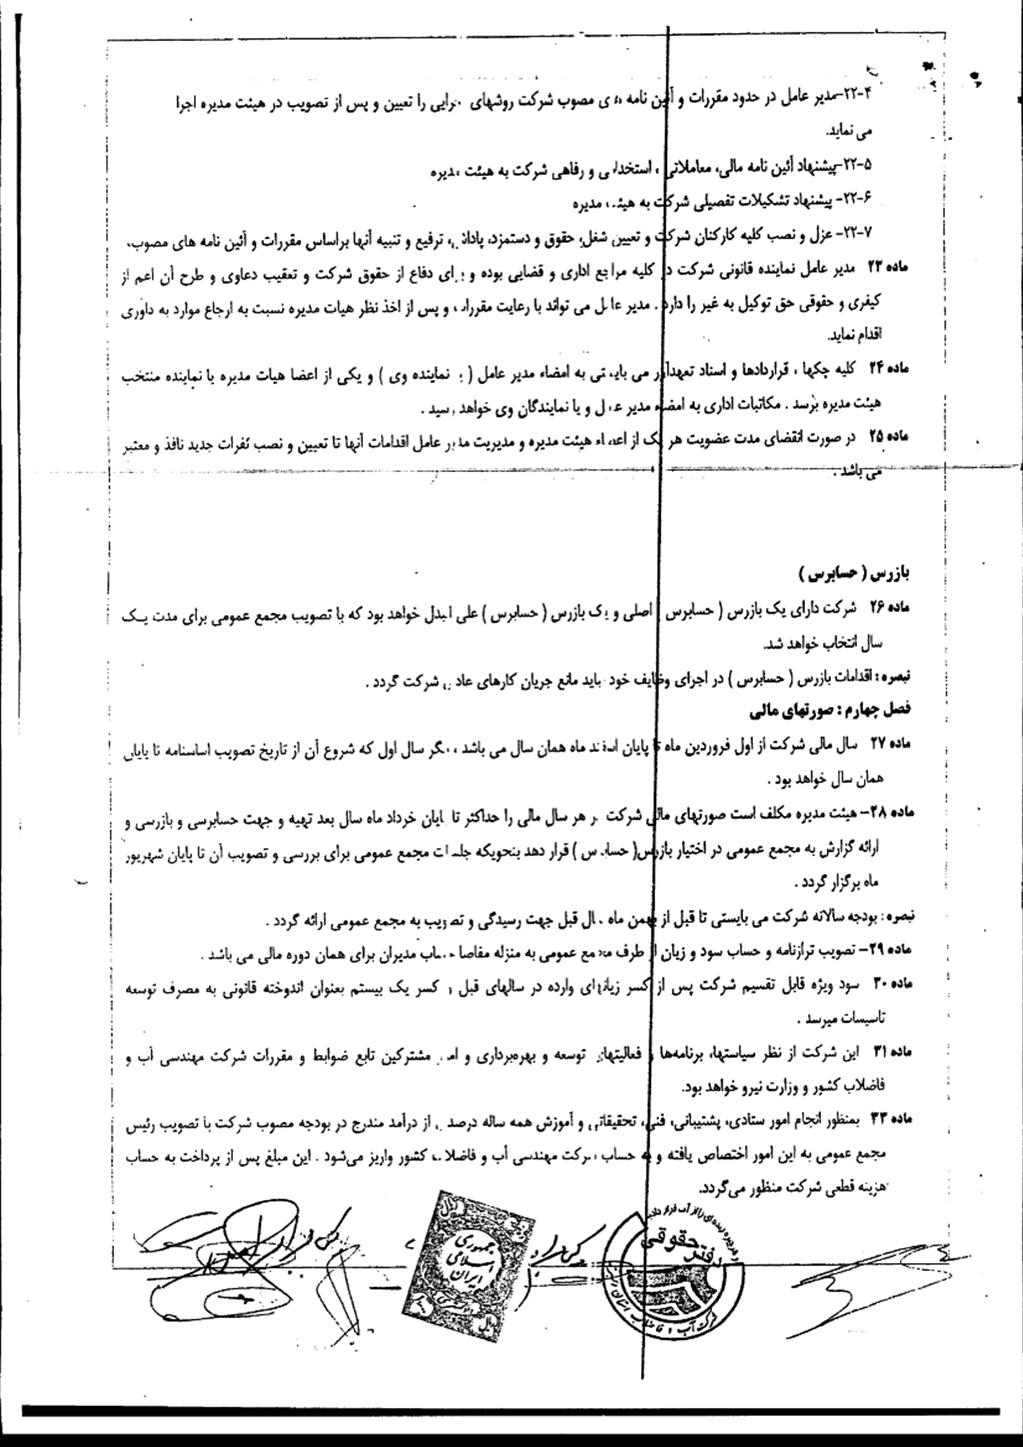 ۲۲-۴-مدیر عامل در حدود مقررات و آئین نامه های مصوب شرکت روشهای اجرایی را تعیین و پس از تصویب در هیئت مدیره اجرا
می نماید.
۲۲-۵-پیشنهاد آئین نامه مالی، معاملاتی ، استخدامی و رفاهی شرکت به هیئت مدیره
۲۲-۶- پیشنهاد تشکیلات تفصیلی شرکت به هیئت مدیره
۲۲-۷- عزل و نصب کلیه کارکنان شرکت و تعیین شغل، حقوق و دستمزد، پاداش، ترفیع و تنبیه آنها براساس مقررات و آئین نامه های مصوب.
ماده ۲۳ مدیر عامل نماینده قانونی شرکت در کلیه مراجع اداری و قضایی بوده و برای دفاع از حقوق شرکت و تعقیب دعاوی و طرح آن اعم از
کیفری و حقوقی حق توکیل به غیر را دارد . مدیر عامل می تواند با رعایت مقررات و پس از اخذ نظر هیات مدیره نسبت به ارجاع موارد به داوری
اقدام نماید.
ماده ۲۴ کلیه چکها ، قراردادها و اسناد تعهدآور می بایستی به امضاء مدیر عامل ( یا نماینده وی ) و یکی از اعضا هیات مدیره یا نماینده منتخب
هیئت مدیره برسد . مکاتبات اداری به امضاء مدیر عامل و یا نمایندگان وی خواهد رسید .
ماده ۲۵ در صورت انقضای مدت عضویت هر یک از اعضاء هیئت مدیره و مدیریت مدیر عامل اقدامات آنها تا تعیین و نصب نفرات جدید نافذ و معتبر
می باشد .
بازرس ( حسابرس )
ماده ۲۶ شرکت دارای یک بازرس ( حسابرس ) اصلی و یک بازرس ( حسابرس ) علی البدل خواهد بود که با تصویب مجمع عمومی برای مدت یک
سال انتخاب خواهد شد.
تبصره : اقدامات بازرس ( حسابرس ) در اجرای وظایف خود نباید مانع جریان کارهای عادی شرکت گردد .
فصل چهارم : صورتهای مالی
ماده ۲۷ سال مالی شرکت از اول فروردین ماه تا پایان اسفند ماه همان سال می باشد ، مگر سال اول که شروع آن از تاریخ تصویب اساسنامه تا پایان
همان سال خواهد بود .
ماده ۲۸- هیئت مدیره مکلف است صورتهای مالی شرکت در هر سال مالی را حداکثر تا پایان خرداد ماه سال بعد تهیه و جهت حسابرسی و بازرسی و
ارائه گزارش به مجمع عمومی در اختیار بازرس( حسابرس ) قرار دهد بنحویکه جلسات مجمع عمومی برای بررسی و تصویب آن تا پایان شهریور
ماه برگزار گردد .
تبصره : بودجه سالانه شرکت می بایستی تا قبل از بهمن ماه سال قبل جهت رسیدگی و تصویب به مجمع عمومی ارائه گردد .
ماده ۲۹- تصویب ترازنامه و حساب سود و زیان از طرف مجمع عمومی به منزله مفاصا حساب مدیران برای همان دوره مالی می باشد .
ماده ۳۰ سود ویژه قابل تقسیم شرکت پس از کسر زیانهای وارده در سالهای قبل و کسر یک بیستم بعنوان اندوخته قانونی به مصرف توسعه
تاسیسات میرسد .
ماده ۳۱ این شرکت از نظر سیاستها، برنامه‌ها و فعالیتهای توسعه و بهره‌برداری و امور مشترکین تابع ضوابط و مقررات شرکت مهندسی آب و
فاضلاب کشور و وزارت نیرو خواهد بود.
ماده ۳۳ بمنظور انجام امور ستادی، پشتیبانی، فنی، تحقیقاتی و آموزش همه ساله درصدی از درآمد مندرج در بودجه مصوب شرکت با تصویب رئیس
مجمع عمومی به این امور اختصاص یافته و به حساب شرکت مهندسی آب و فاضلاب کشور واریز می‌شود . این مبلغ پس از پرداخت به حساب
هزینه قطعی شرکت منظور می‌گردد.
جمهوری
اسلامی
ایران
دفتر حقوقی
شرکت آب و فاضلاب